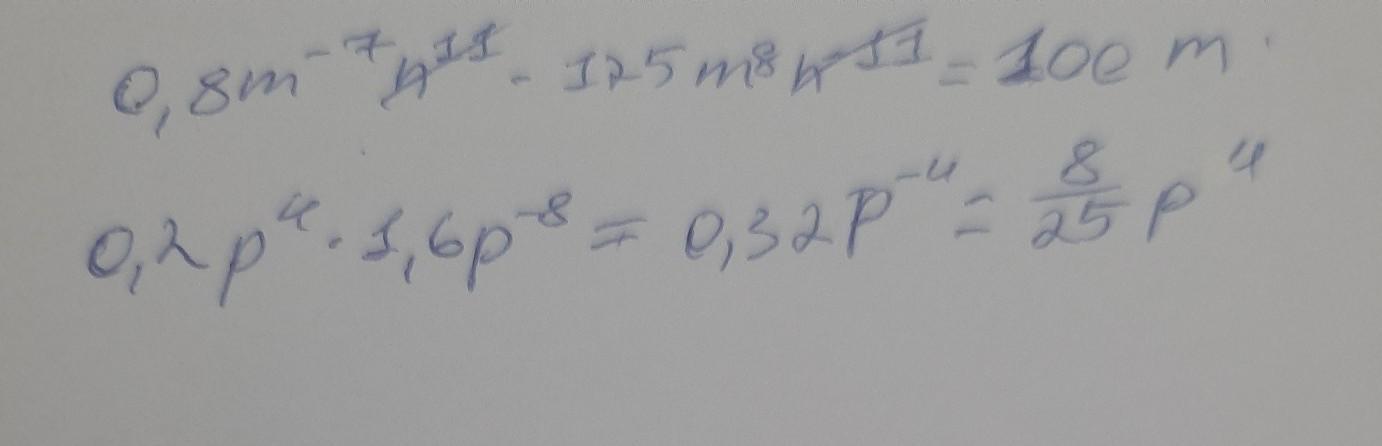 0,8m⁻⁷n¹¹ · 125m⁸n⁻¹¹ = 100 m.
0,2p⁴ · 1,6p⁻⁸ = 0,32p⁻⁴ = 8/25 p⁴